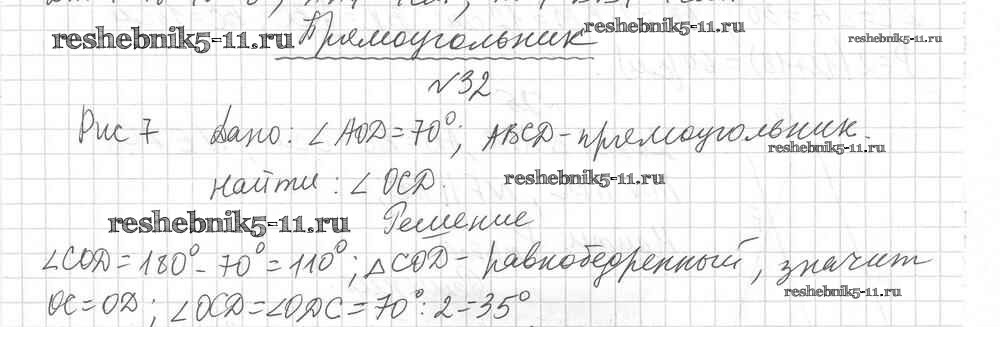 reshebnik5-11.ru Прямоугольник reshebnik5-11.ru reshebnik5-11.ru
№32
Рис 7 Дано: ∠AOD=70°; ABCD-прямоугольник.
reshebnik5-11.ru
Найти: ∠OCD. reshebnik5-11.ru
reshebnik5-11.ru Решение
∠COD=180°-70°=110°; △COD- равнобедренный, значит
reshebnik5-11.ru
OC=OD; ∠OCD=∠ODC=70°:2=35°